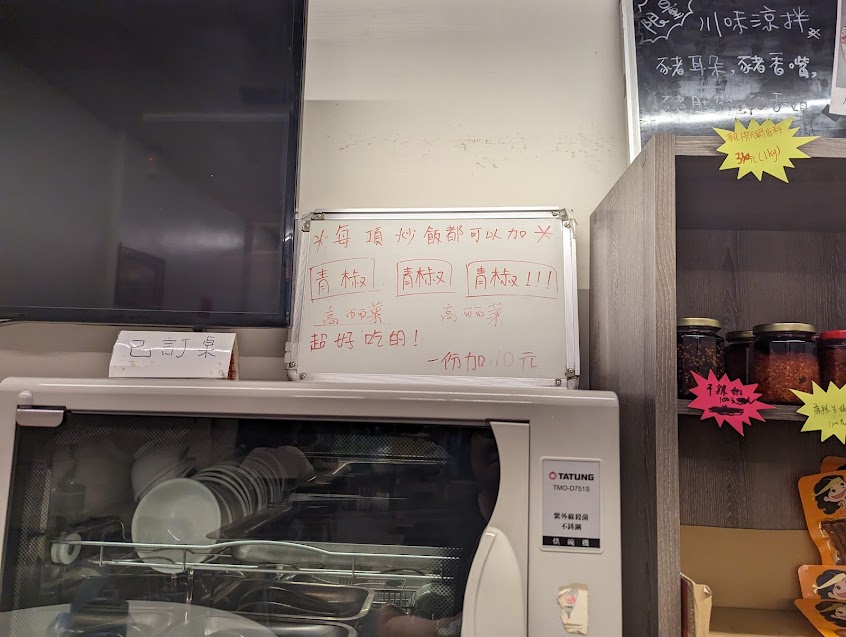 川味涼拌
豬耳朵, 豬香嘴,
334元(1kg)
*每項炒飯都可以加*
青椒 青椒 青椒!!!
高丽菜 高丽菜
超好吃的!
一份加10元
已訂桌
TATUNG
TMO-D751S
紫外線殺菌
不銹鋼
烘碗機
干辣椒
100元